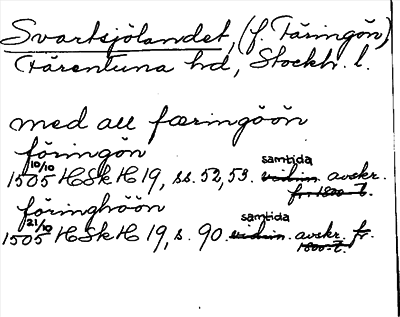 Svartsjölandet, (f. Färingön)
Färentuna hd, Stockh. l.
med all færingöön
föringön
10/10
1505 HSkH 19, ss. 52, 53. samtida vidim. avskr.
fr. 1800-t.
föringhöön
21/10
1505 HSkH 19, s. 90. samtida vidim. avskr. fr.
1800-t.